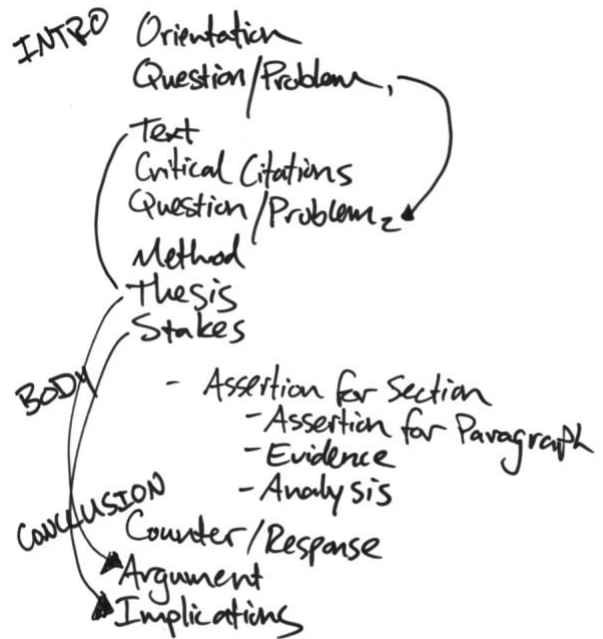 INTRO Orientation
Question/Problem 1
Text
Critical Citations
Question/Problem 2
Method
Thesis
Stakes
BODY - Assertion for Section
- Assertion for Paragraph
- Evidence
- Analysis
CONCLUSION Counter/Response
Argument
Implications